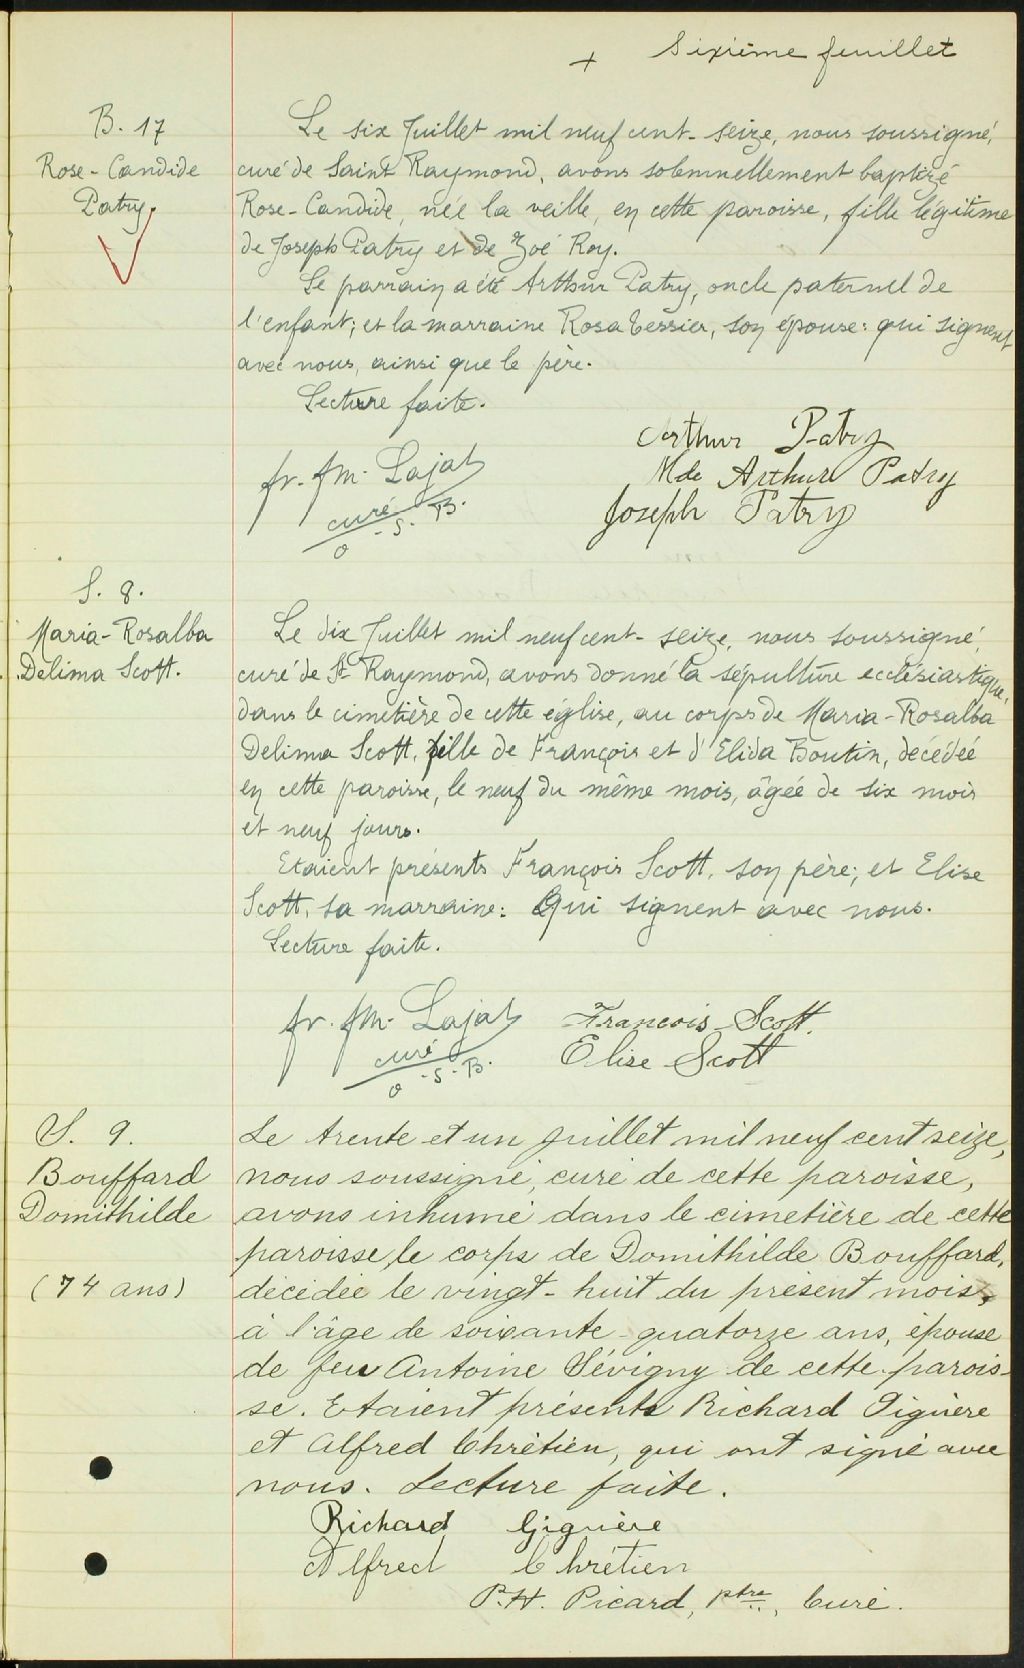 + Sixième feuillet
B. 17
Rose-Candide
Patry.
Le six Juillet mil neuf cent-seize, nous soussigné,
curé de Saint Raymond, avons solennellement baptisé
Rose-Candide, née la veille, en cette paroisse, fille légitime
de Joseph Patry et de Zoé Roy.
Le parrain a été Arthur Patry, oncle paternel de
l'enfant; et la marraine Rosa Tessier, son épouse: qui signent
avec nous, ainsi que le père.
Lecture faite.
Arthur Patry
Mde Arthur Patry
Joseph Patry
fr. fm. Lajat
curé
o - S. B.
S. 8.
Maria-Rosalba
Delima Scott.
Le dix Juillet mil neuf cent-seize, nous soussigné,
curé de St Raymond, avons donné la sépulture ecclésiastique,
dans le cimetière de cette église, au corps de Maria-Rosalba
Delima Scott, fille de François et d'Elida Boutin, décédée
en cette paroisse, le neuf du même mois, âgée de six mois
et neuf jours.
Etaient présents François Scott, son père; et Elise
Scott, sa marraine: Qui signent avec nous.
Lecture faite.
fr. fm. Lajat
curé
o - S. B.
Francois Scott.
Elise Scott
S. 9.
Bouffard
Domithilde
(74 ans)
Le trente et un juillet mil neuf cent seize,
nous soussigné, curé de cette paroisse,
avons inhumé dans le cimetière de cette
paroisse, le corps de Domithilde Bouffard,
décédée le vingt-huit du présent mois,
à l'âge de soixante-quatorze ans, épouse
de feu Antoine Sévigny de cette parois-
se. Etaient présents Richard Giguère
et Alfred Chrétien, qui ont signé avec
nous. Lecture faite.
Richard Giguère
Alfred Chrétien
P.H. Picard, ptre, Curé.